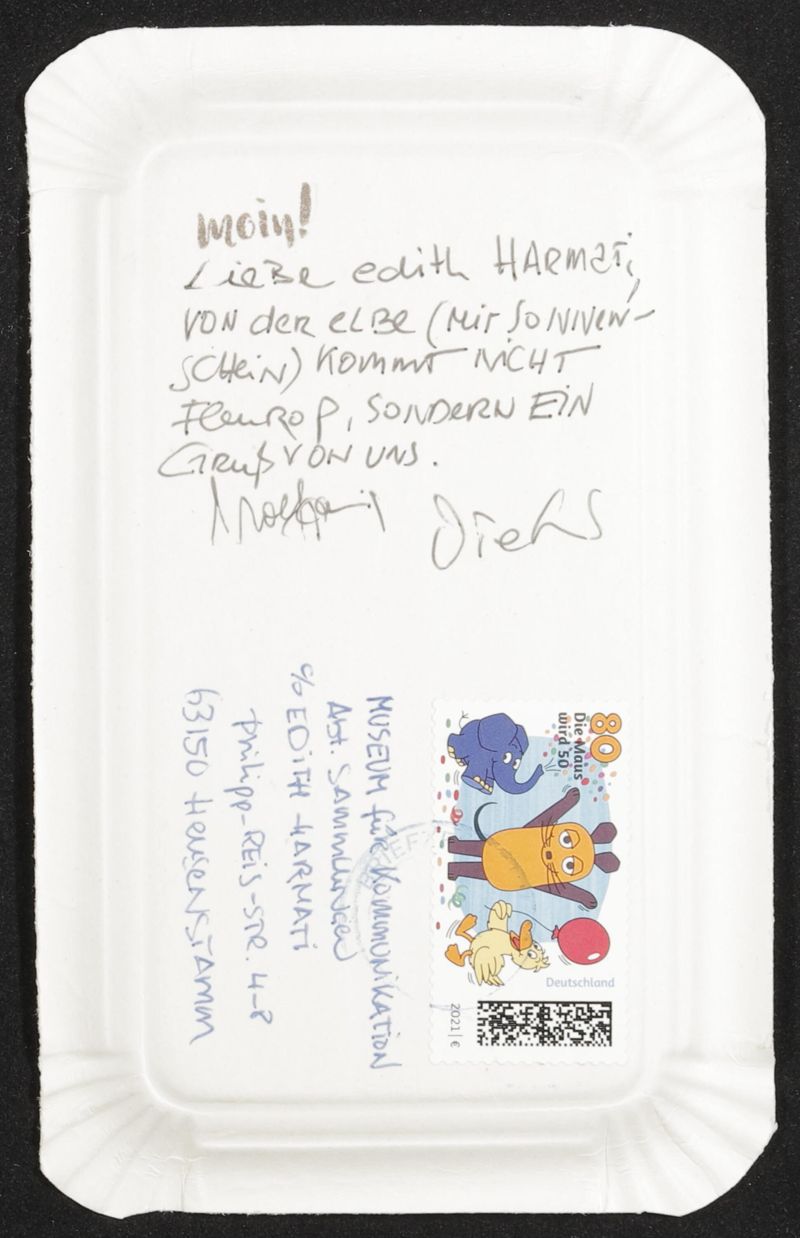 moin!
Liebe edith HARMATi,
VON der eLBe (Mit SONNEN-
SCHEiN) KOMMT NICHT
FLeuRoP, SONDERN EiN
GRuß VON UNS.
Diehl
MUSEUM für KOMMUNiKATiON
Abt. SAMMLUNGEN
c/o EDiTH HARMATi
Philipp-REiS-STR. 4-8
63150 HeuseNSTAMM
80
Die Maus
wird 50
Deutschland
2021 | €
BRIEF